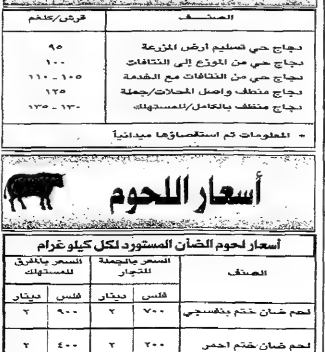 الصنف قرش/كلغم
دجاج حي تسليم أرض المزرعة ٩٥
دجاج حي من الموزع إلى النتافات ١٠٠
دجاج حي من النتافات مع الخدمة ١٠٥-١١٠
دجاج منظف واصل المحلات/جملة ١٢٥
دجاج منظف بالكامل/للمستهلك ١٣٠-١٣٥
* المعلومات تم استقصاؤها ميدانياً
أسعار اللحوم
أسعار لحوم الضأن المستورد لكل كيلو غرام
الصنف السعر بالجملة للتجار السعر بالمفرق للمستهلك
فلس دينار فلس دينار
لحم ضان ختم بنفسجي ٧٠٠ ٢ ٩٠٠ ٢
لحم ضان ختم احمر ٢٠٠ ٢ ٤٠٠ ٢